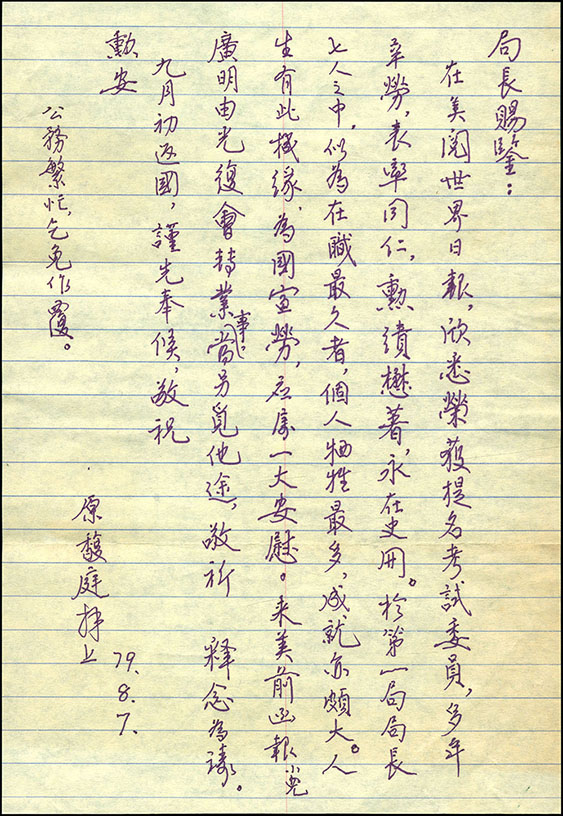 局長賜鑒：
在美閱世界日報，欣悉榮獲提名考試委員，多年
辛勞，表率同仁，勳績懋著，永在史冊。於第一局局長
七人之中，似為在職最久者，個人牺牲最多，成就亦頗大。人
生有此機緣，為國宣勞，應屬一大安慰。來美前函報小兒
廣明由光復會轉業事，當另覓他途，敬祈 释念為禱。
九月初返國，謹先奉候，敬祝
勳安
公務繁忙，乞免作覆。
原馥庭拜上
79.8.7.